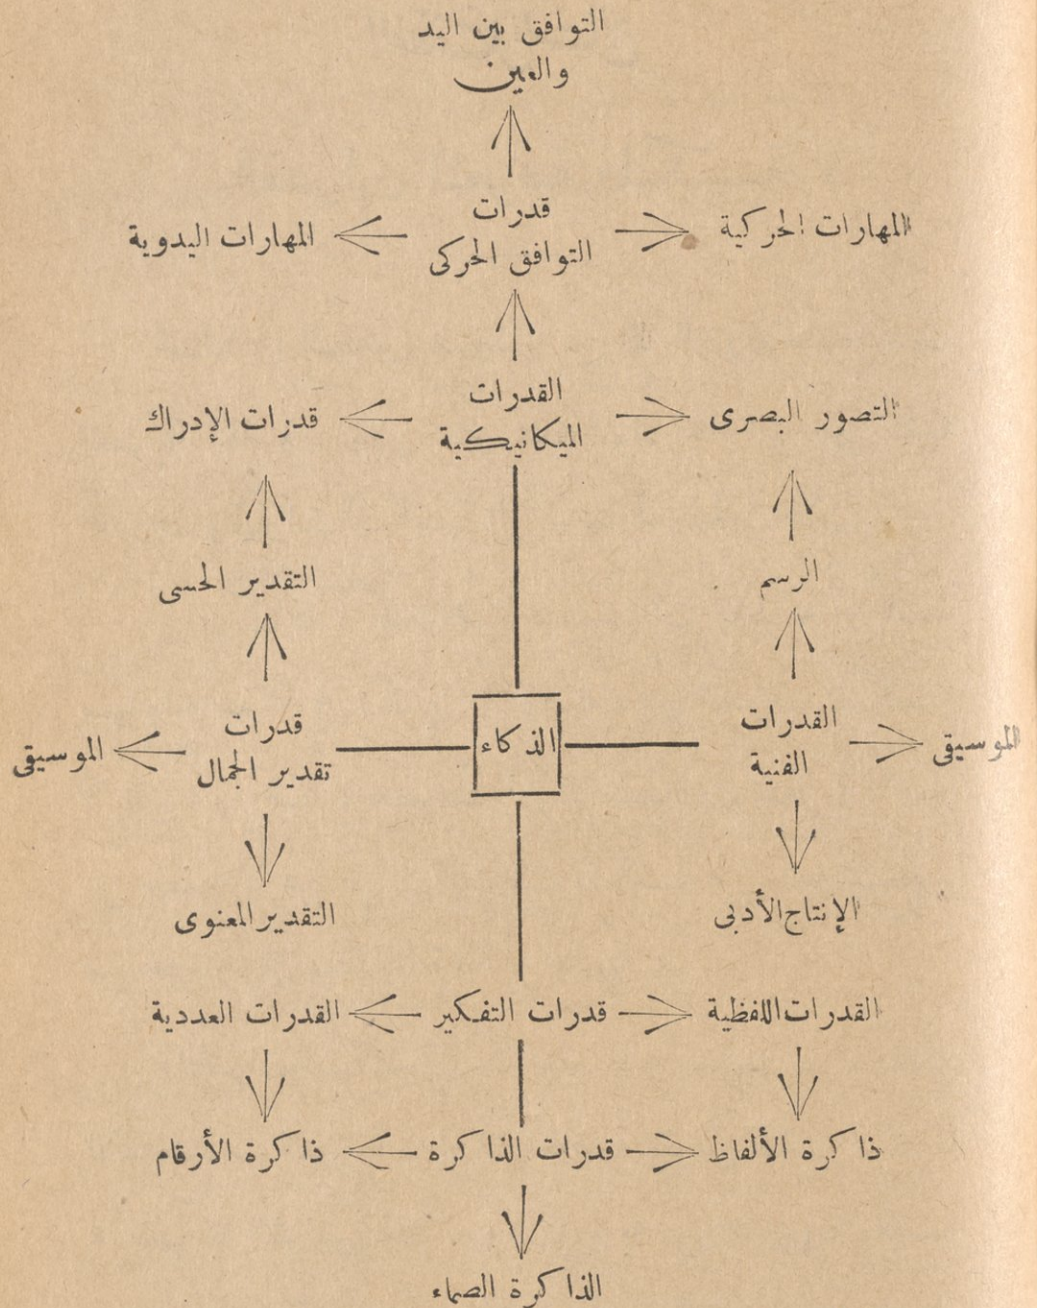 التوافق بين اليد
والعين
المهارات الحركية
قدرات
التوافق الحركى
المهارات اليدوية
التصور البصرى
القدرات
الميكانيكية
قدرات الإدراك
الرسم
التقدير الحسى
الموسيقى
القدرات
الفنية
الذكاء
قدرات
تقدير الجمال
الموسيقى
الإنتاج الأدبى
التقدير المعنوى
القدرات اللفظية
قدرات التفكير
القدرات العددية
ذاكرة الألفاظ
قدرات الذاكرة
ذاكرة الأرقام
الذاكرة الصماء